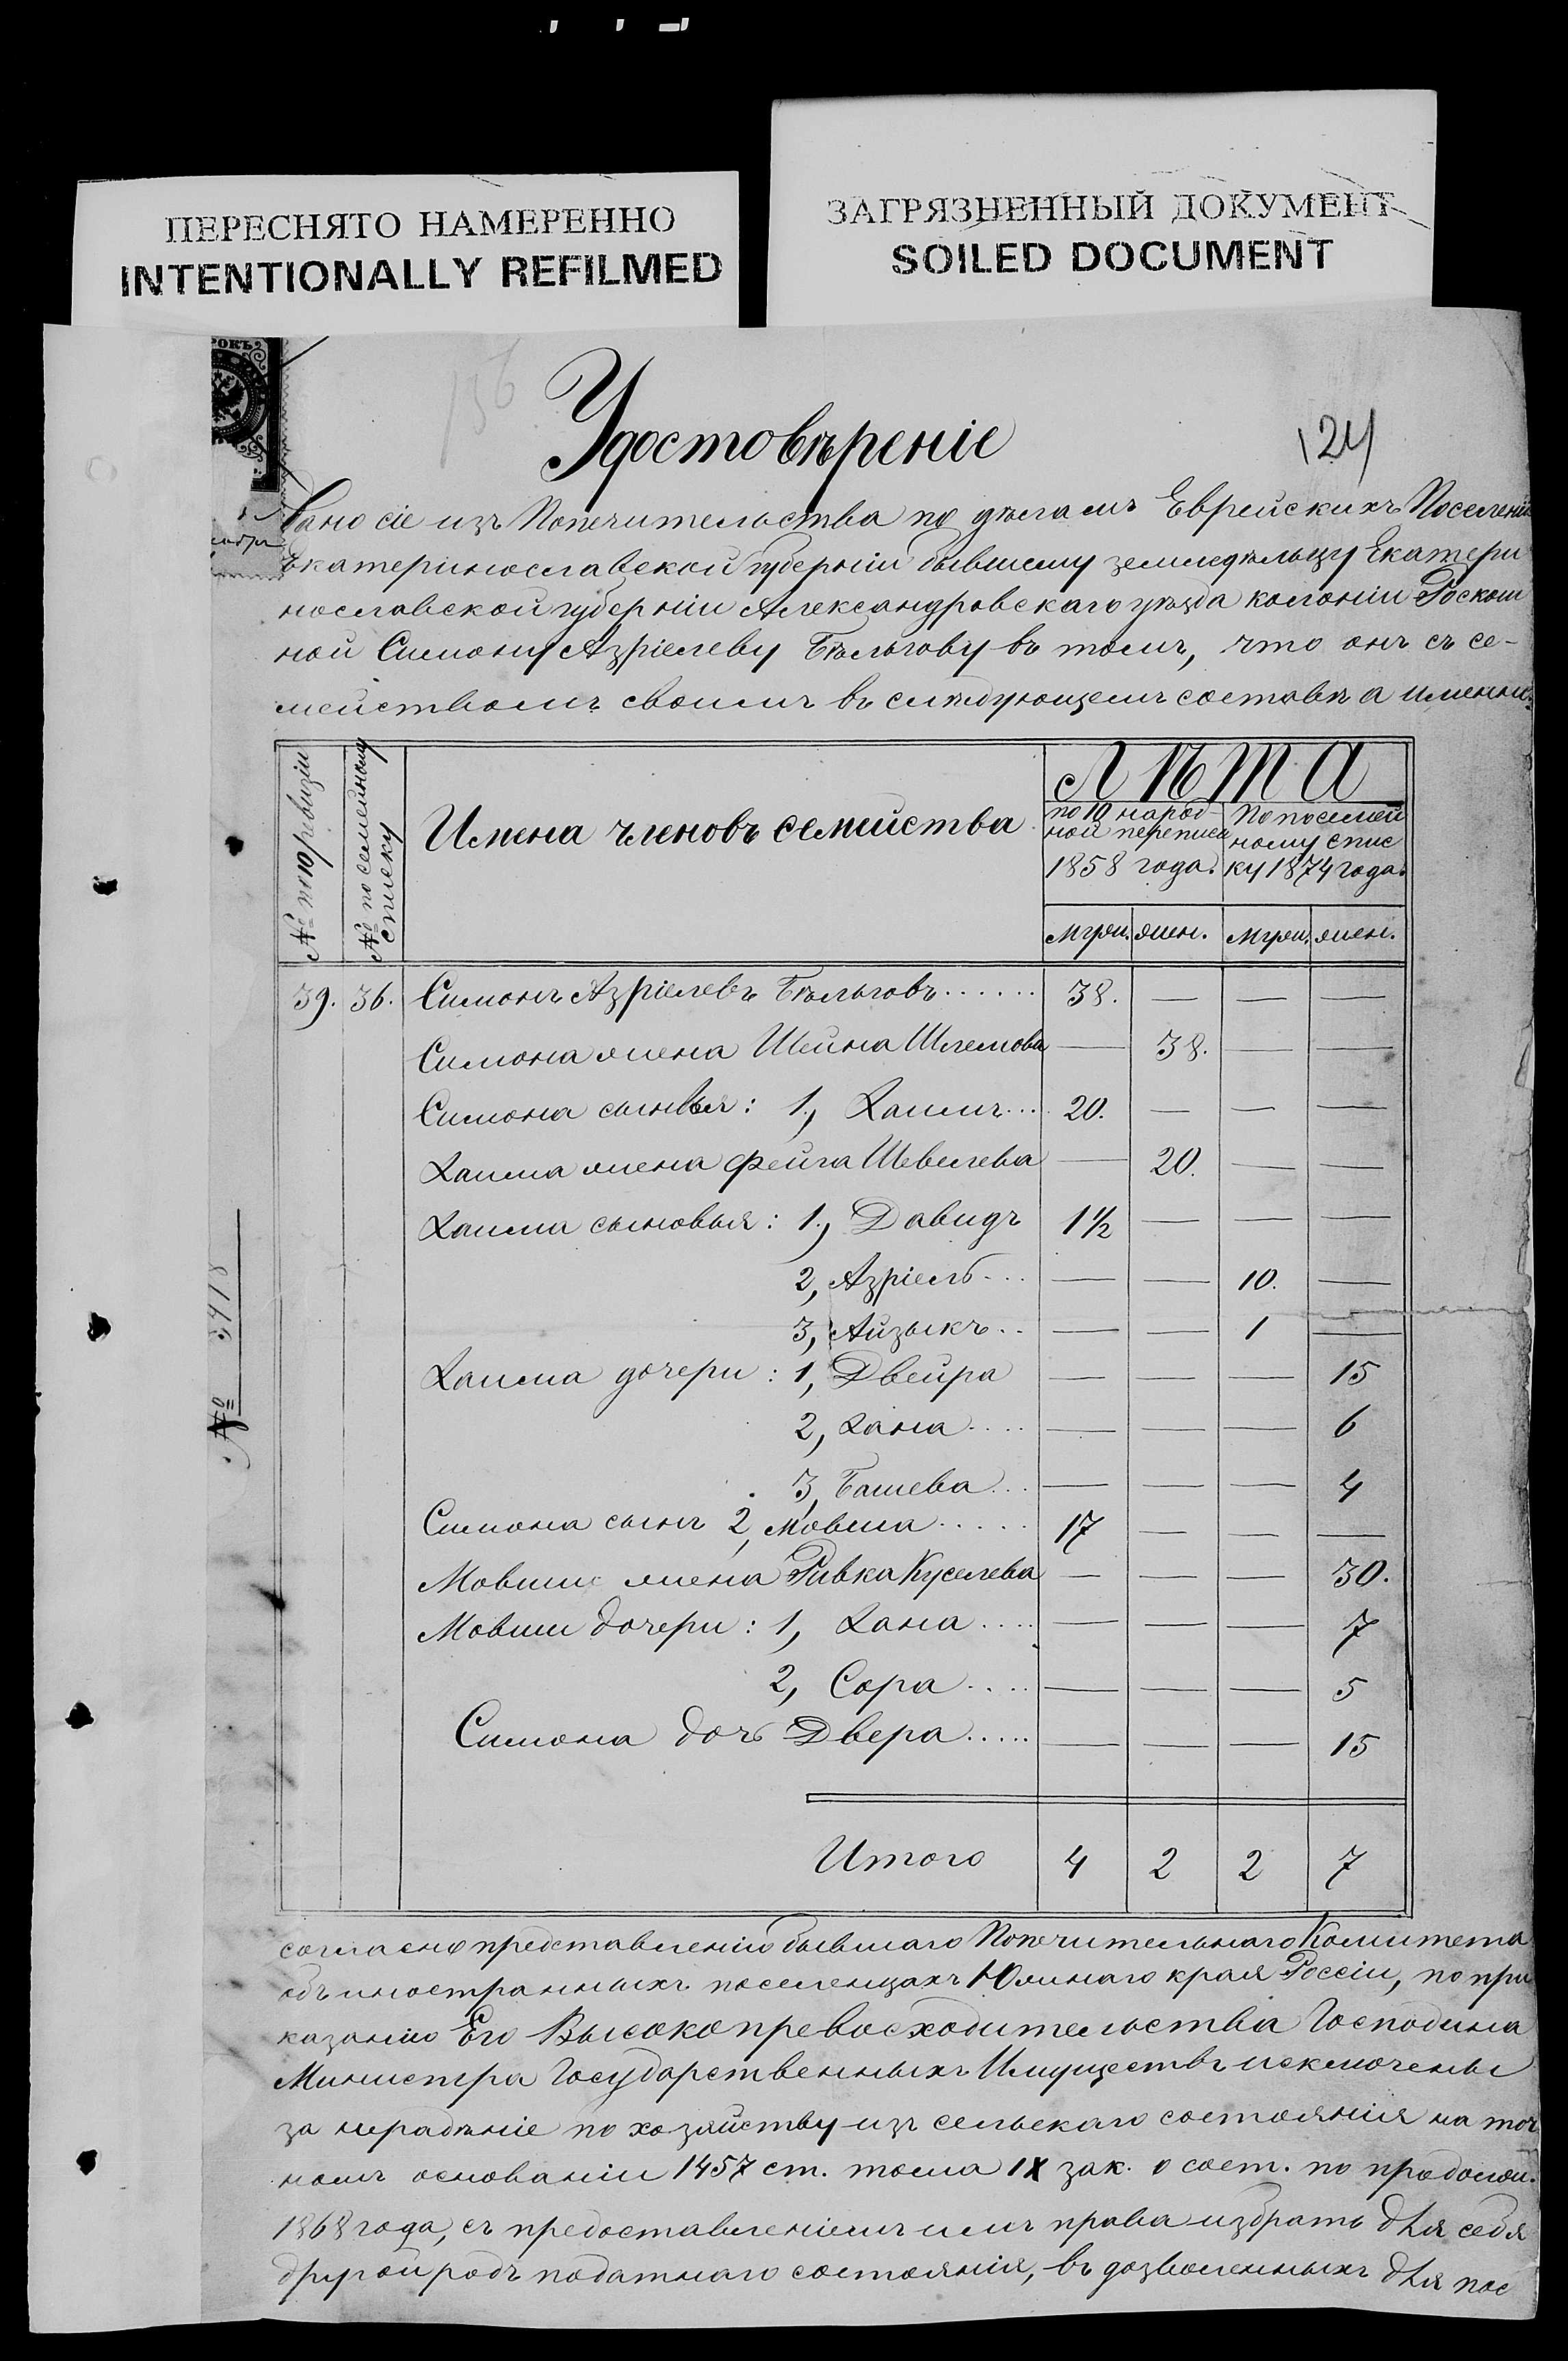 ПЕРЕСНЯТО НАМЕРЕННО
INTENTIONALLY REFILMED
ЗАГРЯЗНЕННЫЙ ДОКУМЕНТ
SOILED DOCUMENT
156
124
Удостовѣреніе
Дано сіе изъ Попечительства по дѣламъ Еврейскихъ Поселеній
Екатеринославской губерніи бывшему земледѣльцу Екатери
нославской губерніи Александровскаго уѣзда колоніи Роскош
ной Симону Азріелеву Бѣльгову въ томъ, что онъ съ се-
мействомъ своимъ въ слѣдующемъ составѣ а именно:
№ по 10 ревизіи
№ по семейному списку
Имена членовъ семейства
Лѣта
по 10 народ- По посемей
ной переписи ному спис
1858 года. ку 1874 года.
Муж. жен. Муж. жен.
39. 36. Симонъ Азріелевъ Бѣльговъ...... 38. — — —
Симона жена Шейна Шлемова — 38. — —
Симона сыновья: 1, Хаимъ.... 20. — — —
Хаима жена Фейга Шевелева — 20. — —
Хаима сыновья: 1, Давидъ 1½ — — —
2, Азріель... — — 10. —
3, Айзыкъ.. — — 1 —
Хаима дочери: 1, Двейра — — — 15
2, Хана.... — — — 6
3, Башева... — — — 4
Симона сынъ 2, Мовша..... 17 — — —
Мовши жена Ривка Куселева — — — 30.
Мовши дочери: 1, Хана.... — — — 7
2, Сора.... — — — 5
Симона дочь Двера..... — — — 15
Итого 4 2 2 7
согласно представленію бывшаго Попечительнаго Комитета
объ иностранныхъ поселенцахъ Южнаго края Россіи, по при
казанію Его Высокопревосходительства Господина
Министра Государственныхъ Имуществъ исключены
за нерадѣніе по хозяйству изъ сельскаго состоянія на точ
номъ основаніи 1457 ст. тома IX зак. о сост. по продолж.
1868 года, съ предоставленіемъ имъ права избрать для себя
другой родъ податнаго состоянія, въ дозволенныхъ для пос
№ 3418